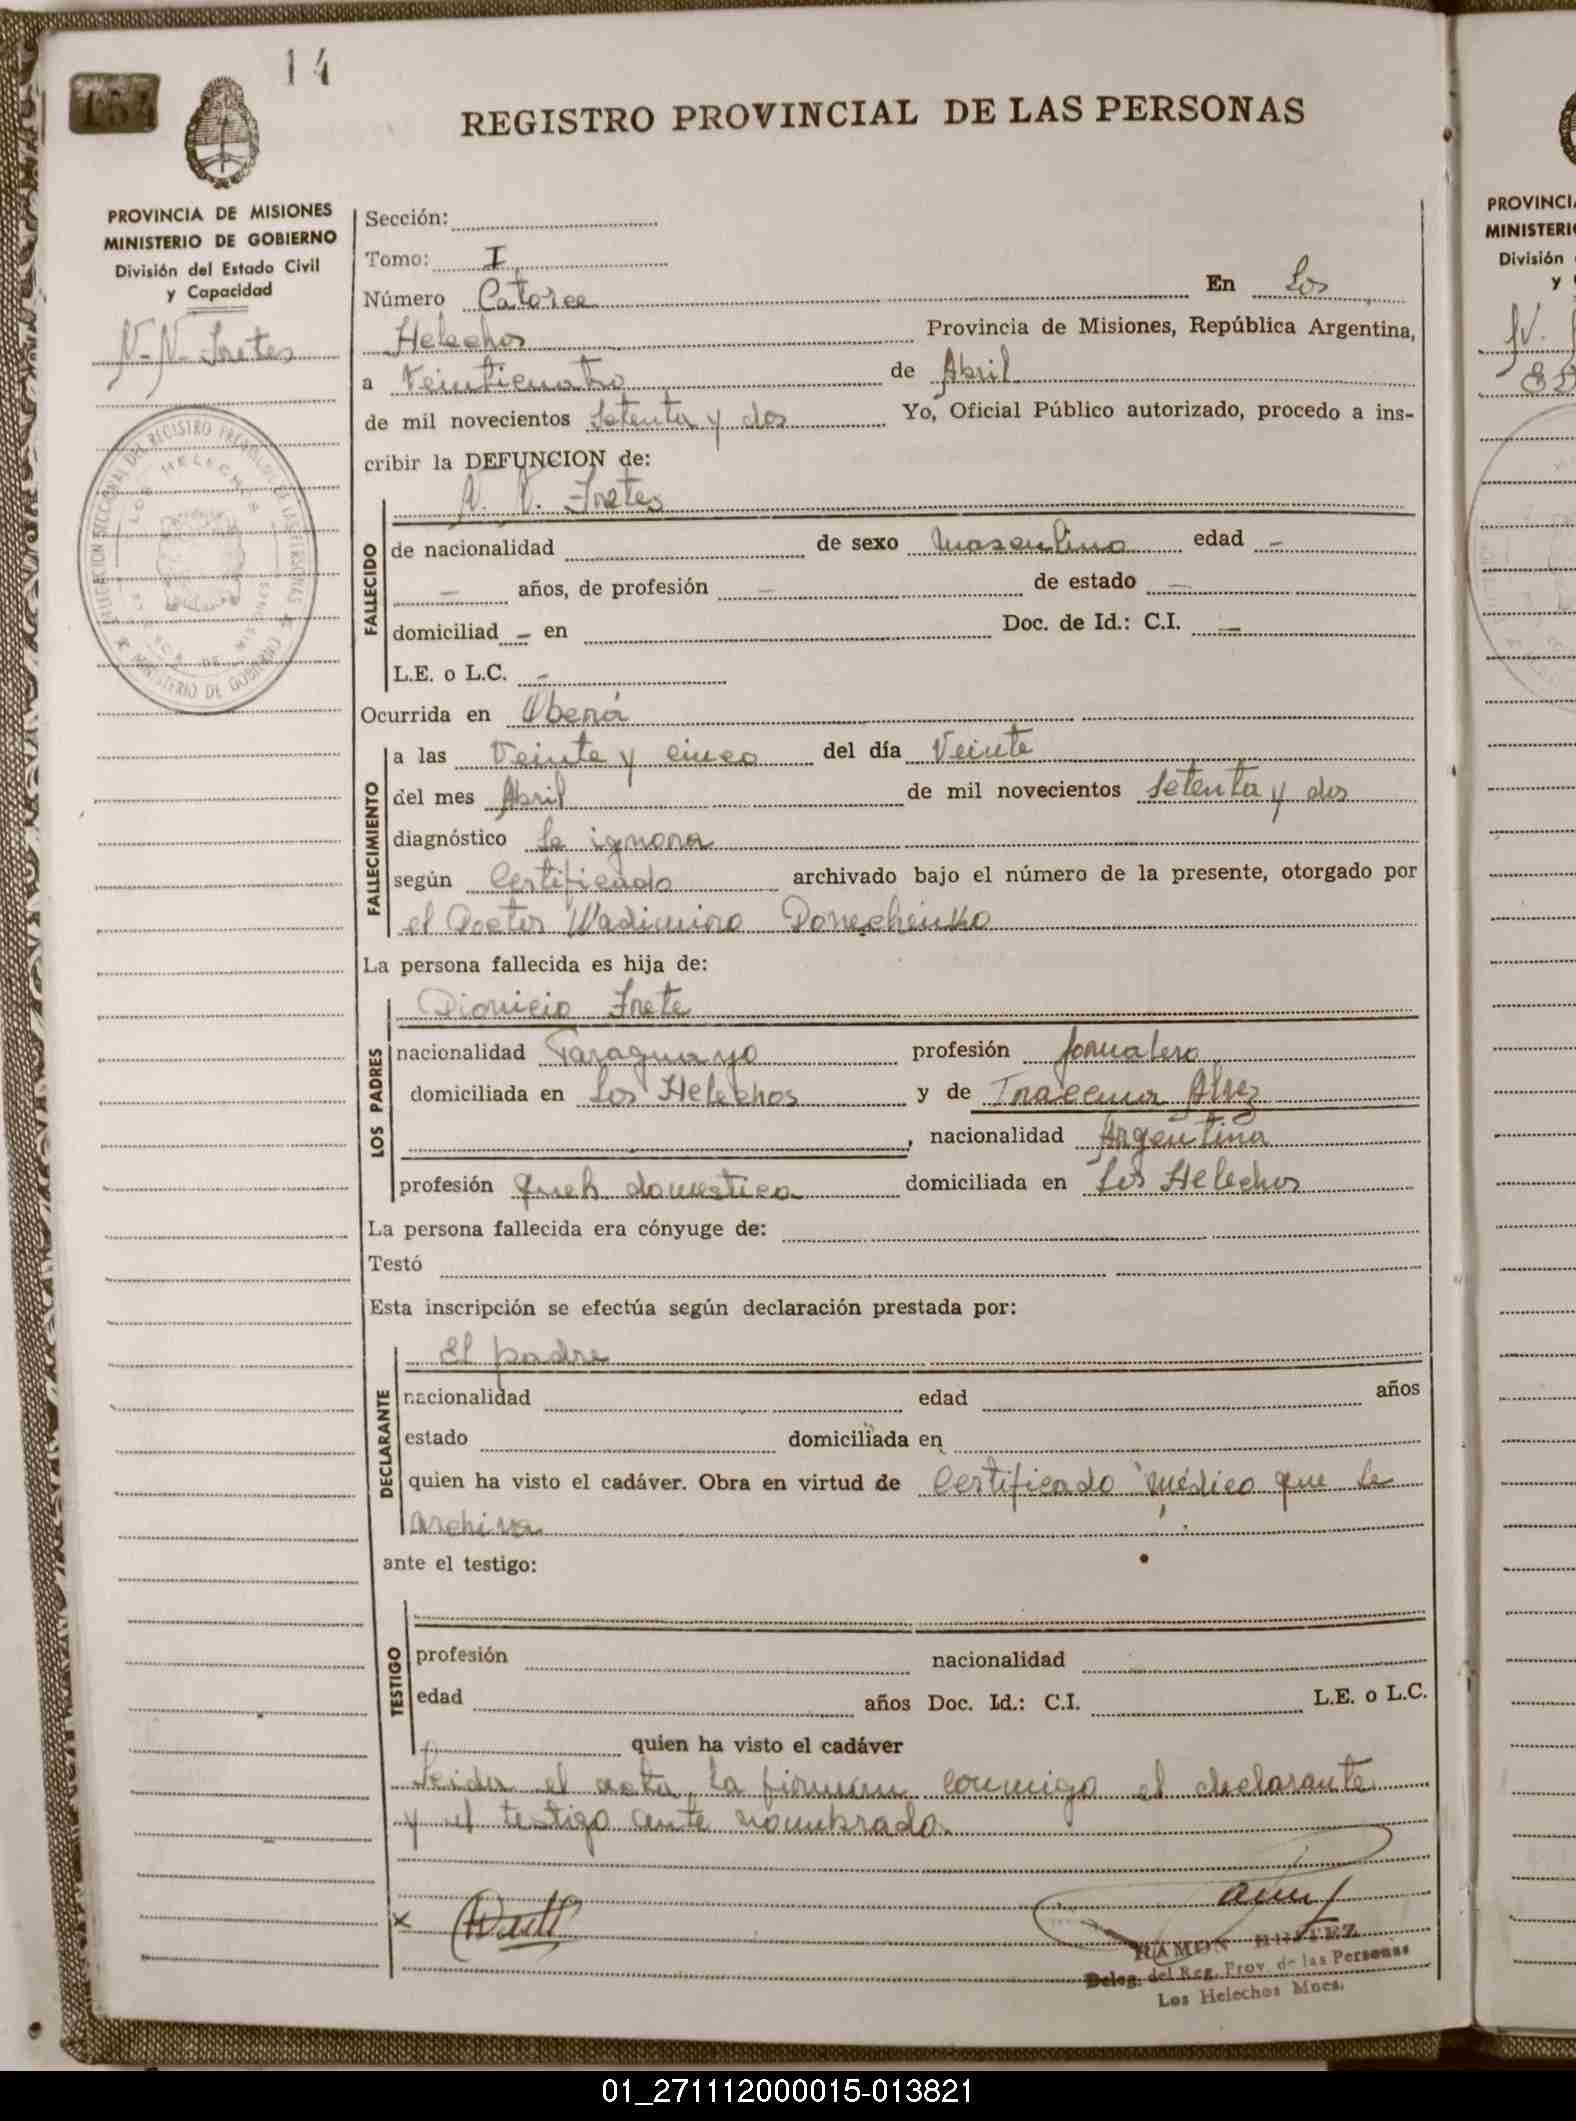 14
154
REGISTRO PROVINCIAL DE LAS PERSONAS
PROVINCIA DE MISIONES
MINISTERIO DE GOBIERNO
División del Estado Civil
y Capacidad
N. N. Fretes
Sección:
Tomo: I
Número Catorce En Los
Helechos Provincia de Misiones, República Argentina,
a Veinticuatro de Abril
de mil novecientos Setenta y dos Yo, Oficial Público autorizado, procedo a ins-
cribir la DEFUNCION de:
N. N. Fretes
FALLECIDO
de nacionalidad de sexo Masculino edad -
- años, de profesión - de estado -
domiciliad - en Doc. de Id.: C.I. -
L.E. o L.C. -
Ocurrida en Oberá
FALLECIMIENTO
a las Veinte y cinco del día Veinte
del mes Abril de mil novecientos Setenta y dos
diagnóstico Se ignora
según Certificado archivado bajo el número de la presente, otorgado por
el Doctor Wadimiro
La persona fallecida es hija de:
LOS PADRES
Dionicio Frete
nacionalidad Paraguayo profesión Jornalero
domiciliada en Los Helechos y de
, nacionalidad Argentina
profesión domestica domiciliada en Los Helechos
La persona fallecida era cónyuge de:
Testó
Esta inscripción se efectúa según declaración prestada por:
DECLARANTE
El padre
nacionalidad edad años
estado domiciliada en
quien ha visto el cadáver. Obra en virtud de Certificado médico que se
archiva
ante el testigo:
TESTIGO
profesión nacionalidad
edad años Doc. Id.: C.I. L.E. o L.C.
quien ha visto el cadáver
Leida el acta, la firman conmigo el declarante
y el testigo ante nombrado.
x
RAMON
Deleg. del Reg. Prov. de las Personas
Los Helechos Mnes.
PROVINCI
MINISTERI
División
y
N.
01_271112000015-013821